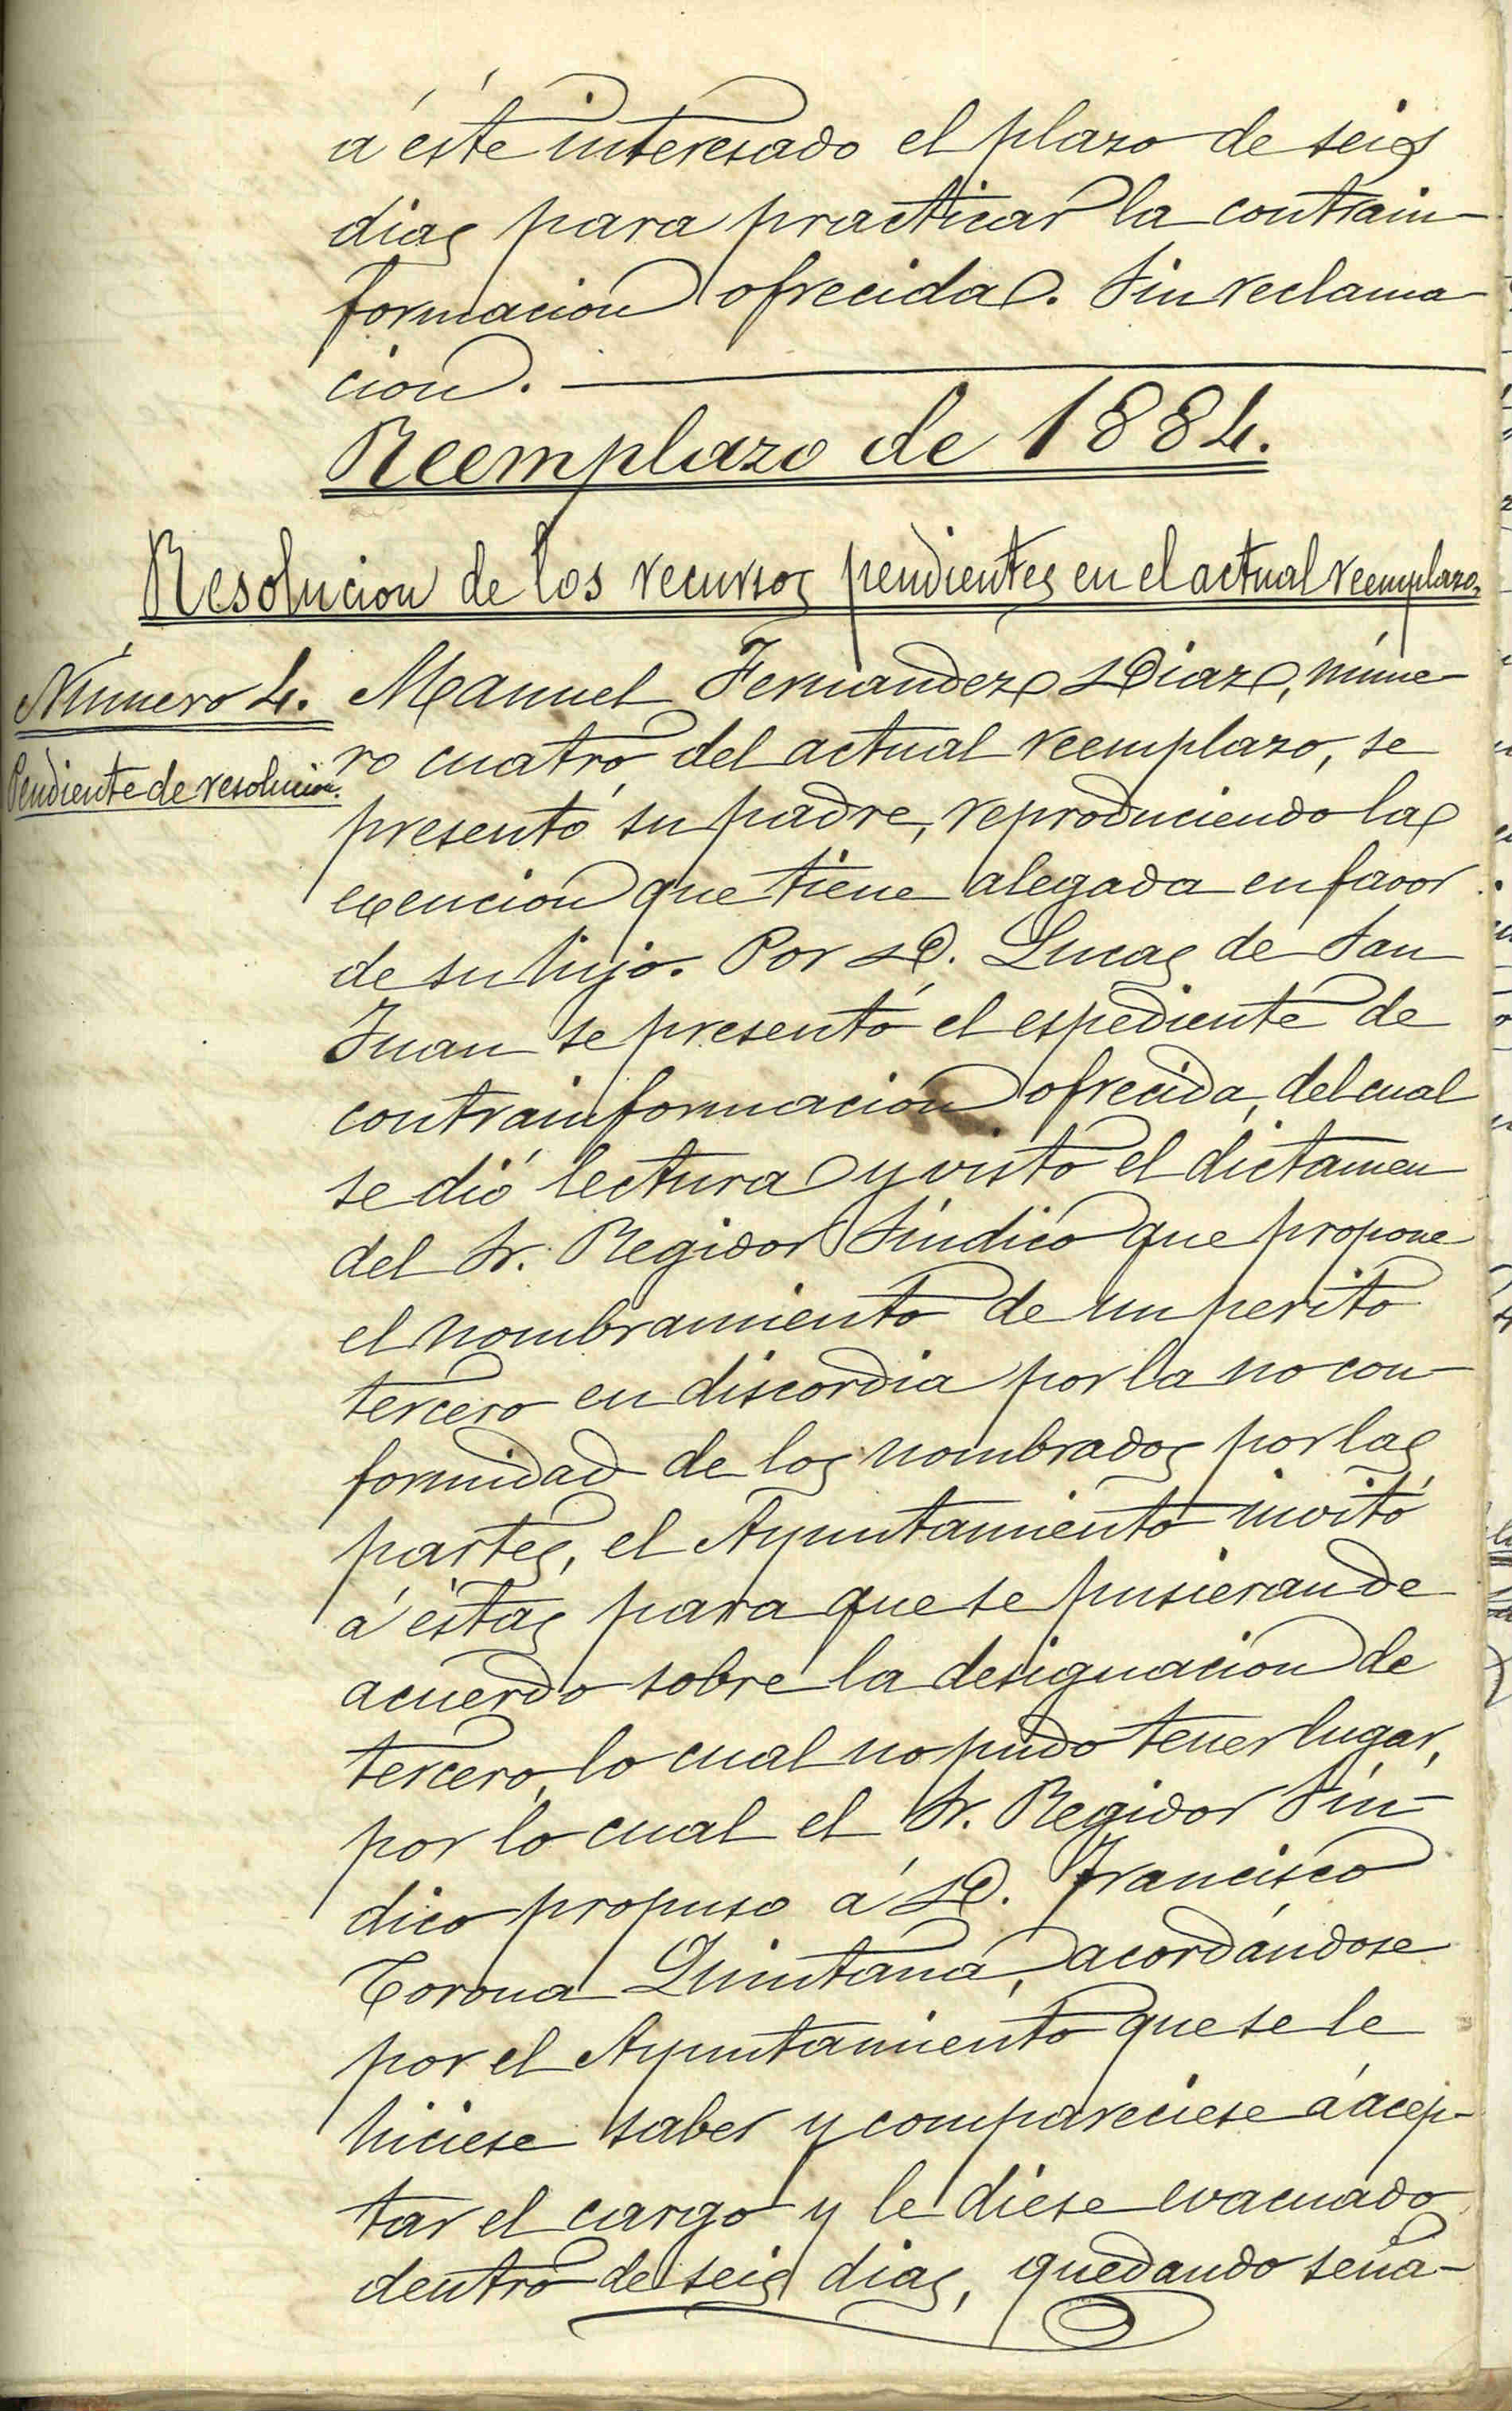 á éste interesado el plazo de seis
dias para practicar la contrain-
formacion ofrecida. Sin reclama-
cion.
Reemplazo de 1884.
Resolucion de los recursos pendientes en el actual reemplazo.
Número 4.
Pendiente de resolucion.
Manuel Fernandez Diaz, núme-
ro cuatro del actual reemplazo, se
presentó su padre, reproduciendo la
exencion que tiene alegada en favor
de su hijo. Por D. Lucas de San
Juan se presentó el espediente de
contrainformacion ofrecida, del cual
se dió lectura y visto el dictamen
del Sr. Regidor Síndico que propone
el nombramiento de un perito
tercero en discordia por la no con-
formidad de los nombrados por las
partes, el Ayuntamiento invitó
á éstas para que se pusieran de
acuerdo sobre la designacion de
tercero, lo cual no pudo tener lugar,
por lo cual el Sr. Regidor Sín-
dico propuso á D. Francisco
Corona Quintana, acordándose
por el Ayuntamiento que se le
hiciese saber y compareciese á acep-
tar el cargo y le diese evacuado
dentro de seis dias, quedando seña-